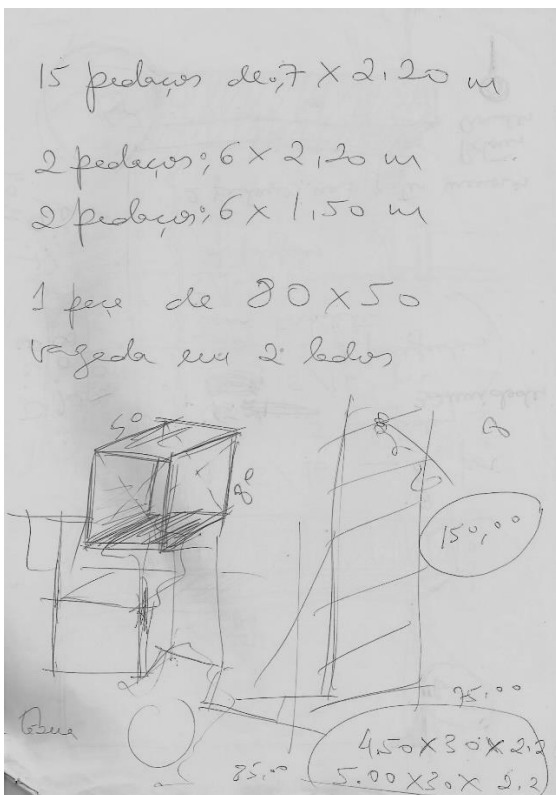 15 pedaços de ,7 X 2.20 m
2 pedaços ,6 X 2,20 m
2 pedaços ,6 X 1,50 m
1 peça de 80 X 50
vazada em 2 lados
50
80
150,00
75,00
4,50 X 30 X 2,2
85,00
5.00 X 30 X 2,2